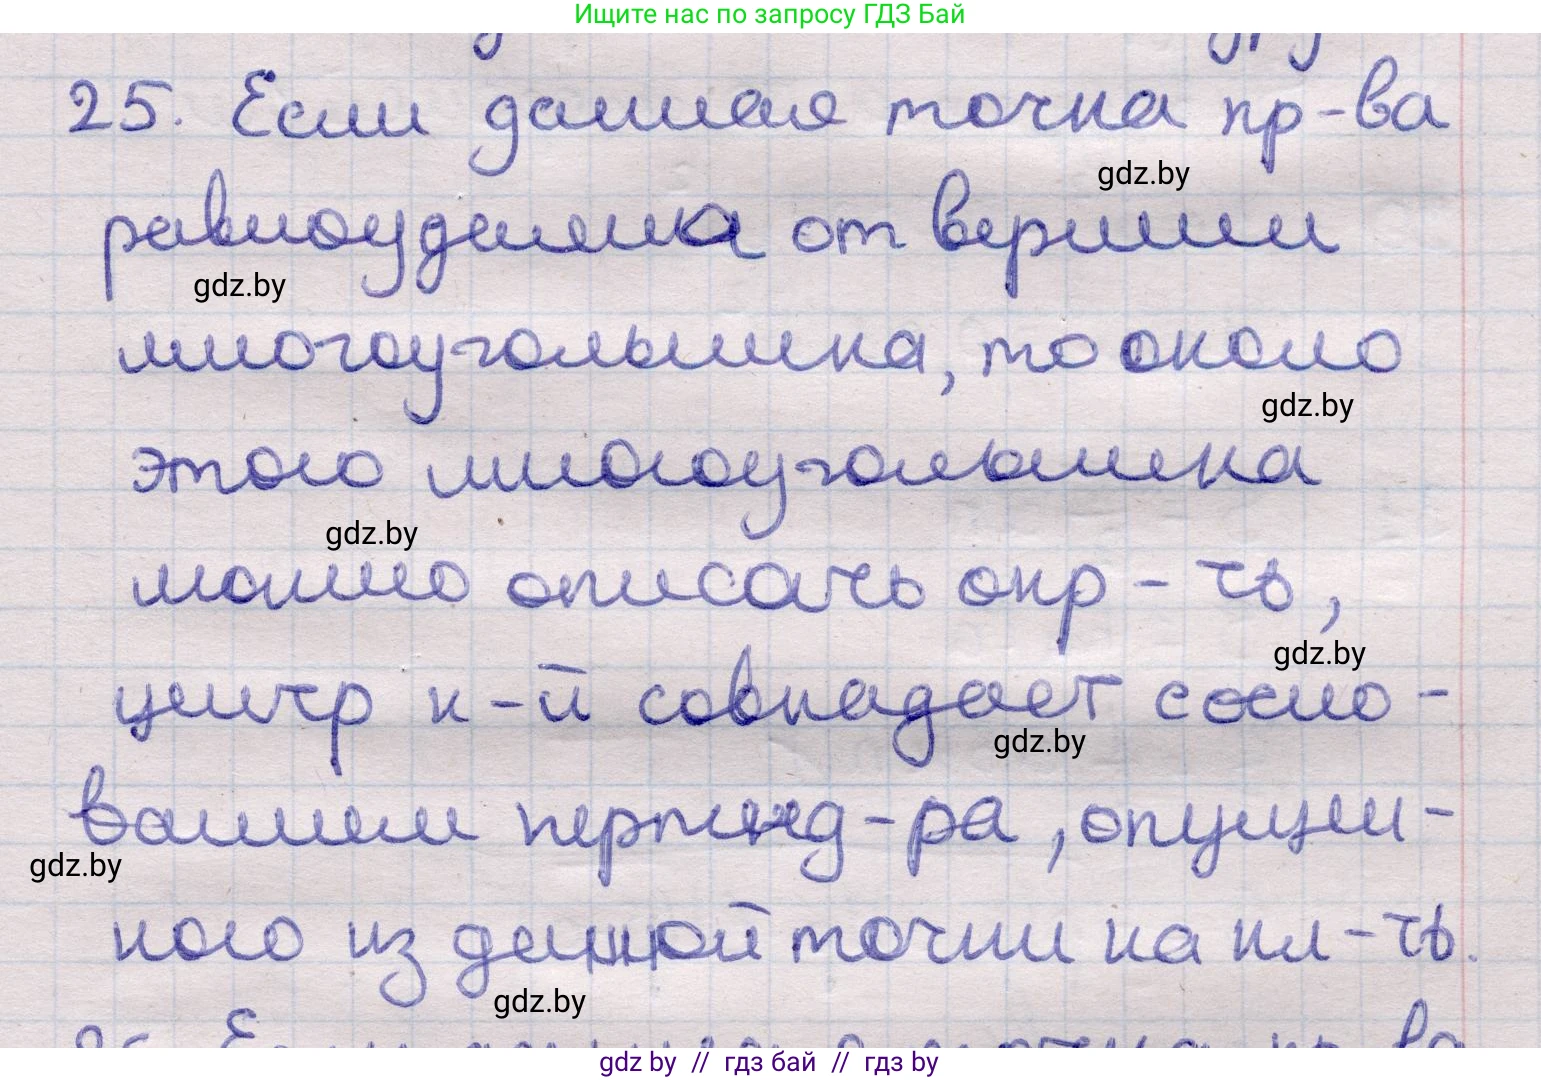 Ищите нас по запросу ГДЗ Бай
25. Если данная точка пр-ва
gdz.by
равноудалена от вершин
gdz.by
многоугольника, то около
gdz.by
этого многоугольника
gdz.by
можно описать окр-ть,
gdz.by
центр к-й совпадает с осно-
gdz.by
ванием перпенд-ра, опущен-
gdz.by
ного из данной точки на пл-ть.
gdz.by
gdz by // гдз бай // гдз by